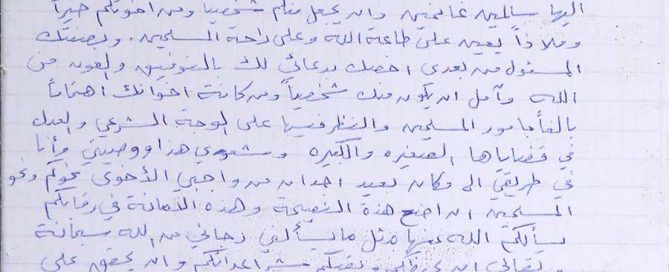 اليها سالمين غانمين وان يجعل منكم شخصياً ومن اخوتكم خيراً
وملاذاً يعين على طاعة الله وعلى راحة المسلمين. وبصفتك
المسئول من بعدي اخصك بدعائي لك بالتوفيق والعون من
الله وآمل ان يكون منك شخصياً ومن كافة اخوانك اهتماماً
بالغاً بامور المسلمين والنظر فيها على الوجه الشرعي والعدل
في قضاياها الصغيره والكبيره وشعوري هذا ووصيتي وأنا
في طريقي الى مكان بعيد اجد ان من واجبي الأخوي نحوكم ونحو
المسلمين ان اضع هذه النصيحة وهذه الامانة في رقابكم
يسألكم الله عنها مثل ما يسألني رجائي من الله سبحانه
وتعالى ان شر اعدائكم وان يحقق على